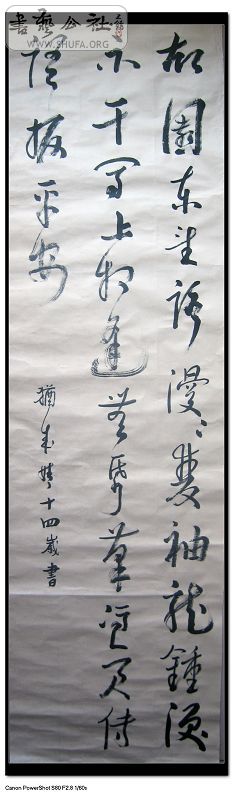 書藝公社
WWW.SHUFA.ORG
故園東望路漫〻雙袖龍鍾淚
不干馬上相逢無紙筆憑君傳
語報平安
十四歲書
Canon PowerShot S80 F2.8 1/60s